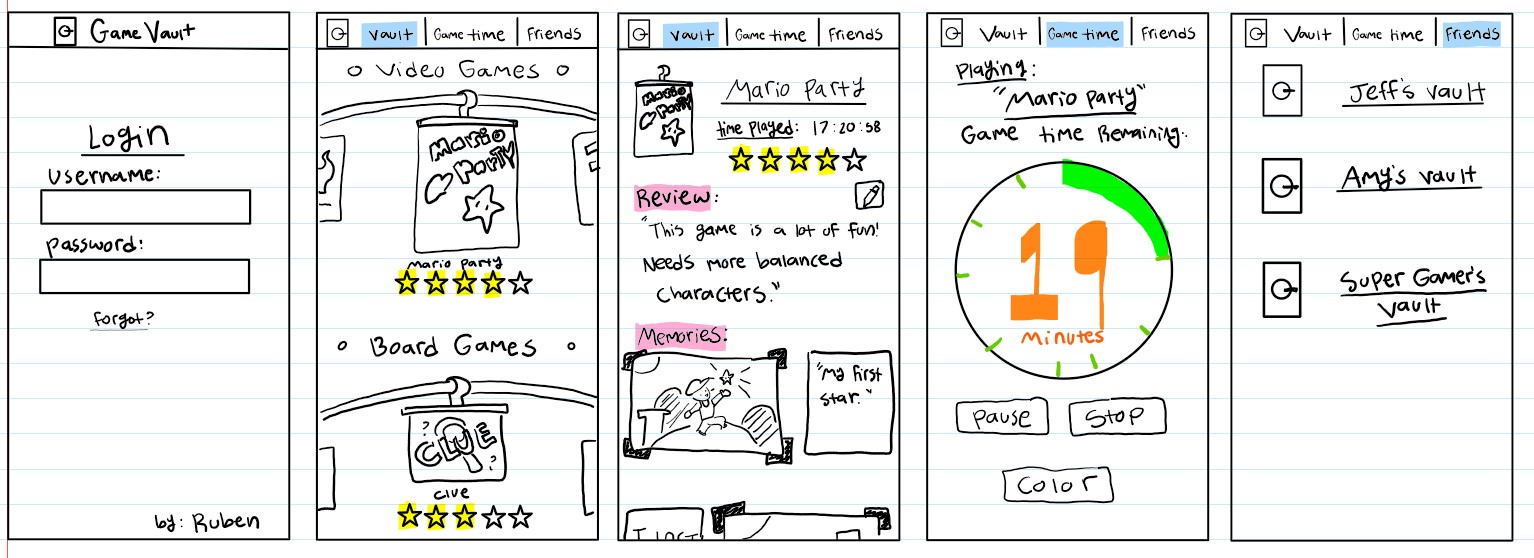 Game Vault
Login
username:
password:
Forgot?
by: Ruben
Vault Game time Friends
Video Games
Mario
Party
Mario Party
Board Games
CLUE
? ?
Clue
Vault Game time Friends
Mario
Party
Mario Party
time played: 17:20:58
Review:
"This game is a lot of fun!
Needs more balanced
characters."
Memories:
"My first
star."
I lost
Vault Game time Friends
Playing:
"Mario Party"
Game time Remaining:
19
Minutes
Pause Stop
Color
Vault Game time Friends
Jeff's Vault
Amy's Vault
Super Gamer's
Vault